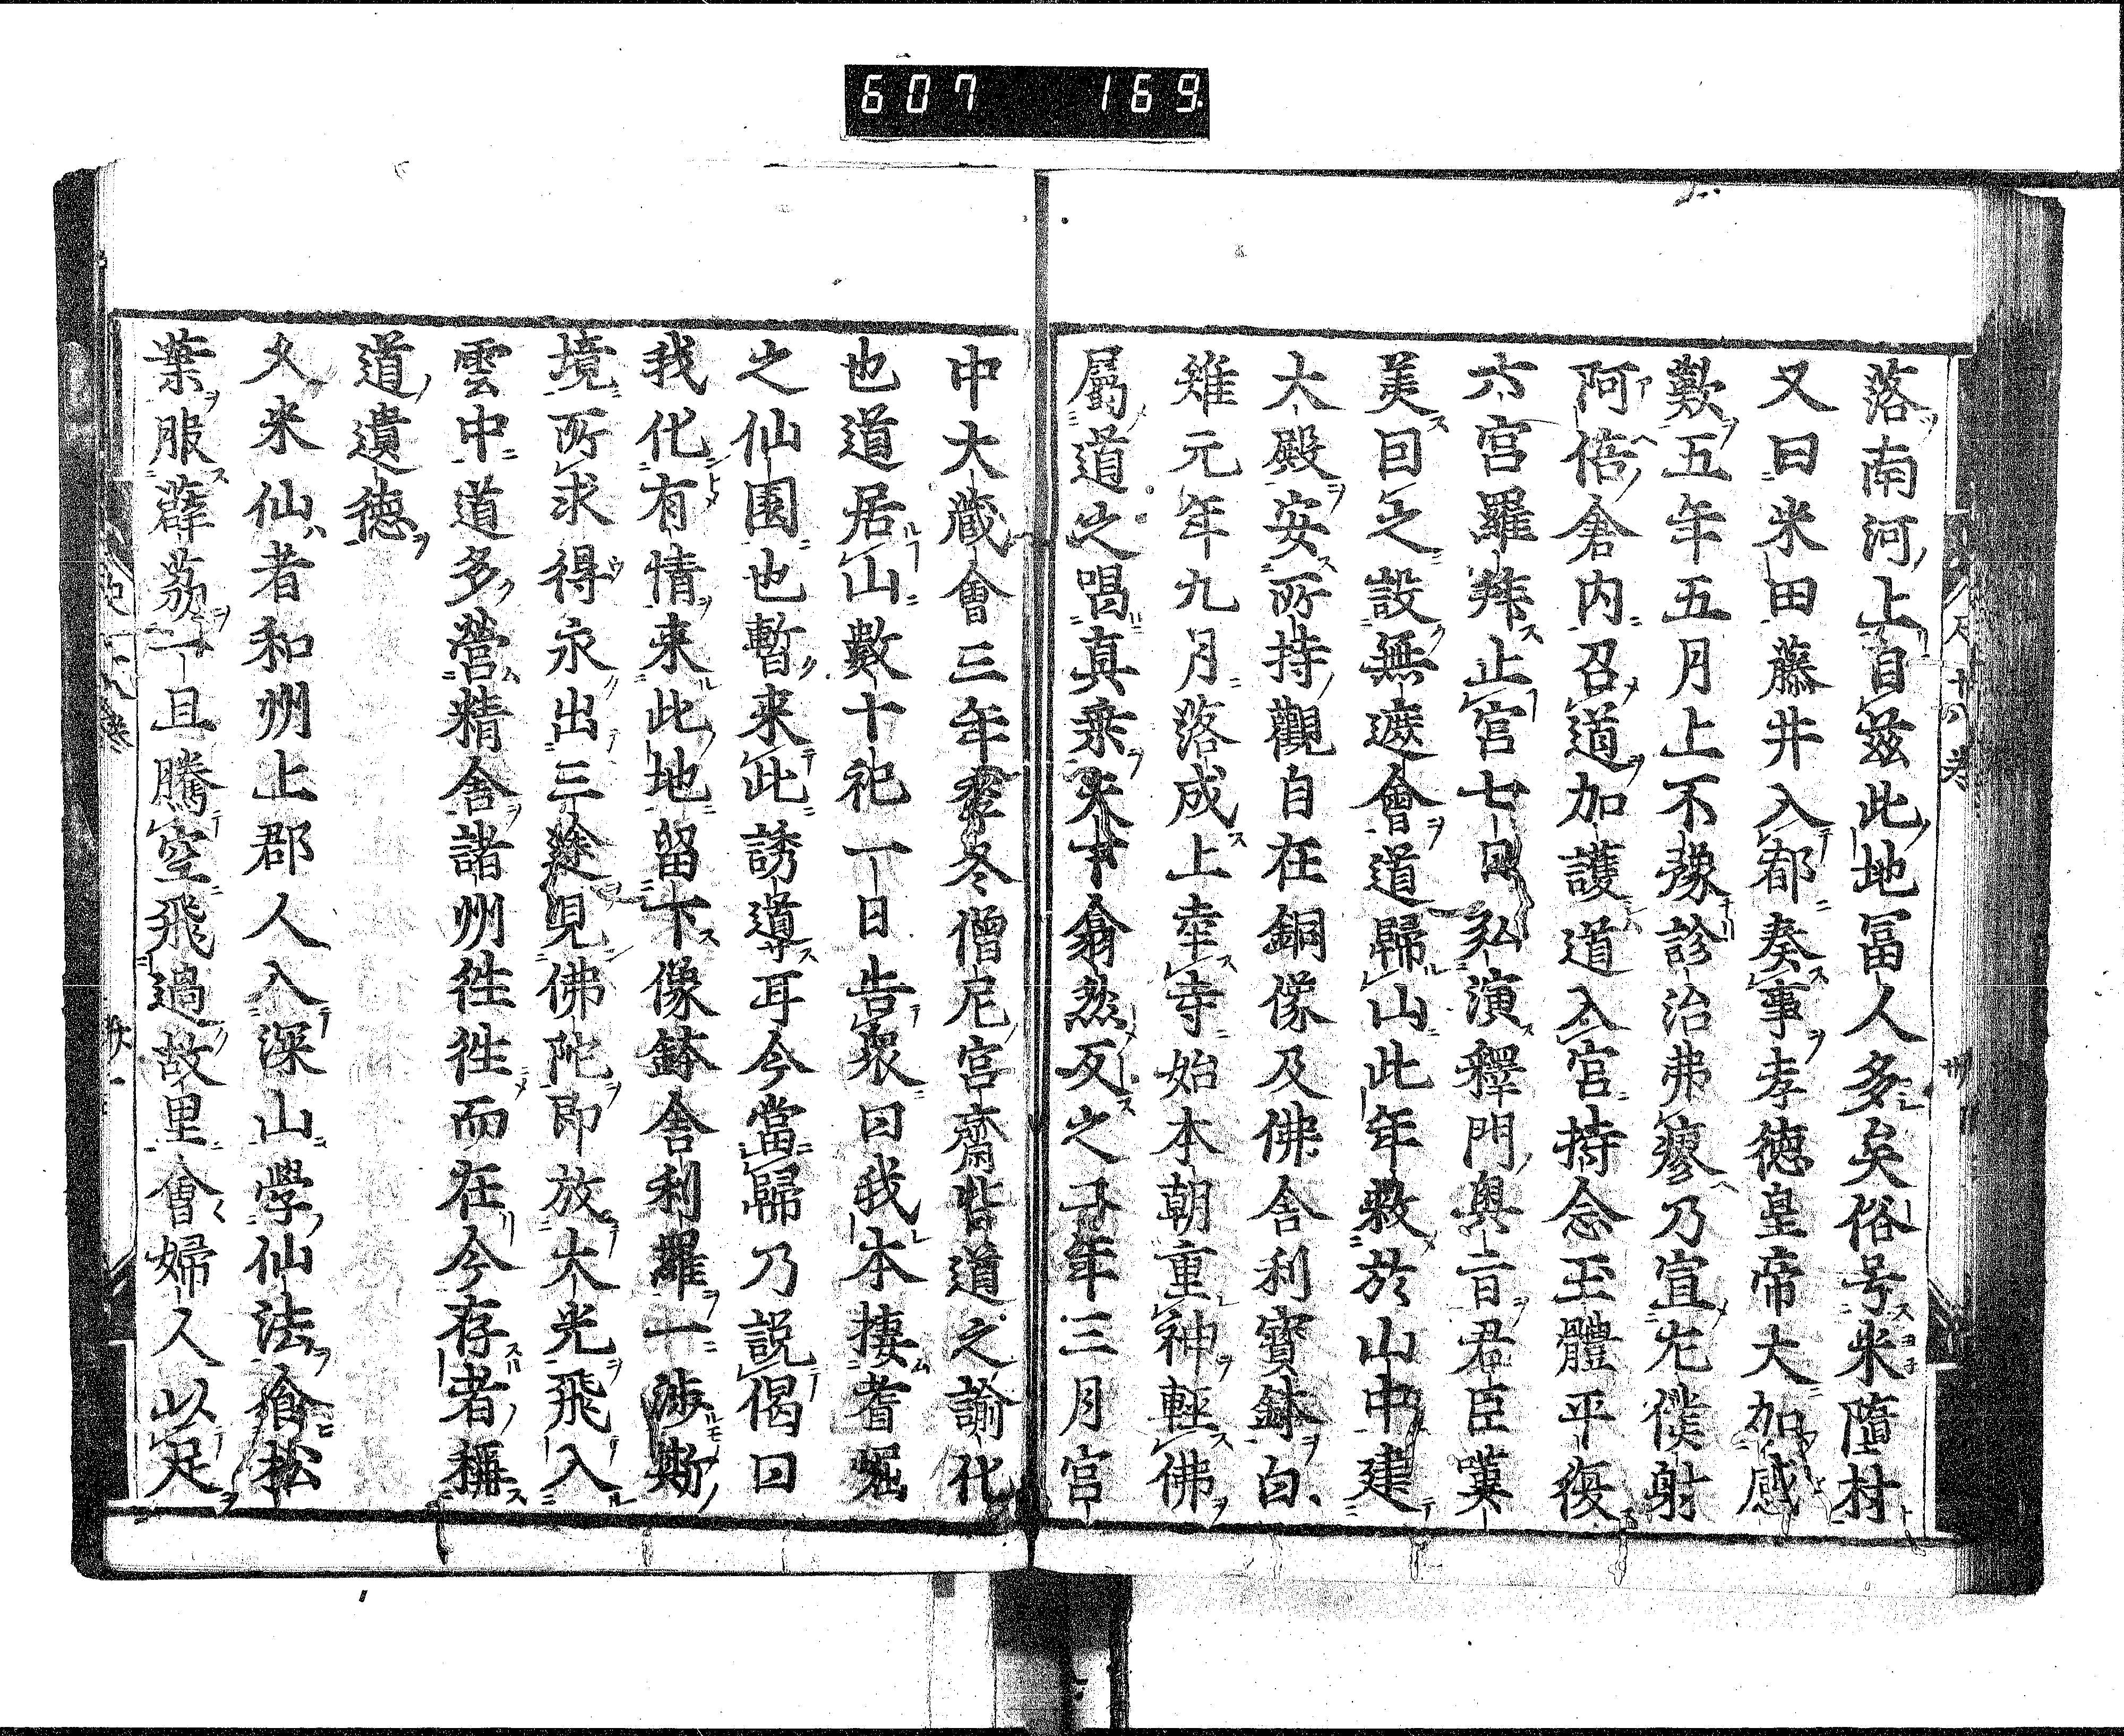 607 169
落南河上自茲此地冨人多矣俗号米墮村
又曰米田藤井入都奏事孝徳皇帝大加感
歎五年五月上不豫診治弗瘳乃宣左僕射
阿倍倉内召道加護道入宮持念玉體平復
六宮羅拜止宮七日弘演釋門奥旨君臣冀
美囙之設無遮會道歸山此年敕於山中建
大殿安所持觀自在銅像及佛舎利寳鉢白
雉元年九月落成上幸寺始本朝重神輕佛
屬道之唱真乗天下翕然反之二年三月宮
中大藏會三年季冬僧尼宮齋皆道之諭化
也道居山數十祀一日告衆曰我本捿耆崛
之仙園也暫来此誘導耳今當歸乃説偈曰
我化有情来此地留下像鉢舎利羅一涉斯
境所求得永出三途見佛陀即放大光飛入
雲中道多營精舎諸州徃徃而在今存者稱
道遺徳
久米仙者和州上郡人入深山學仙法食松
葉服薜荔一旦騰空飛過故里會婦人以足